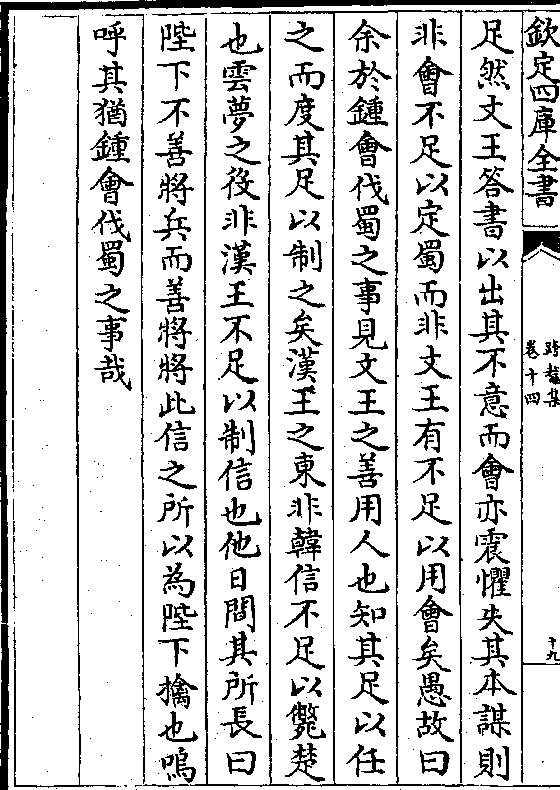 欽定四庫全書
卷十四
十九
足然文王答書以出其不意而會亦震懼失其本謀則
非會不足以定蜀而非文王有不足以用會矣愚故曰
余於鍾會伐蜀之事見文王之善用人也知其足以任
之而度其足以制之矣漢王之東非韓信不足以斃楚
也雲夢之後非漢王不足以制信也他日問其所長曰
陛下不善將兵而善將將此信之所以為陛下擒也嗚
呼其猶鍾會伐蜀之事哉